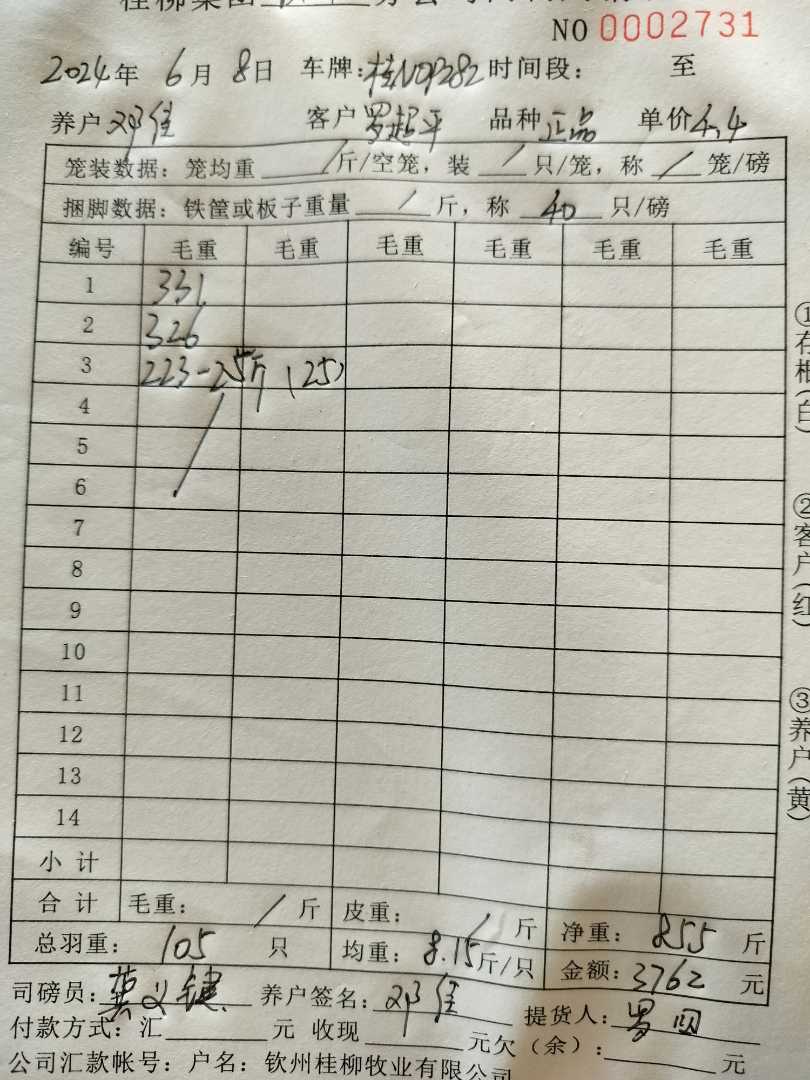 桂柳集团 分公司
NO 0002731
2024年 6月 8日 车牌: 时间段: 至
养户 邓佳 客户 罗超平 品种 正品 单价 4.4
笼装数据: 笼均重 / 斤/空笼, 装 / 只/笼, 称 / 笼/磅
捆脚数据: 铁筐或板子重量 / 斤, 称 40 只/磅
编号 毛重 毛重 毛重 毛重 毛重 毛重
1 331
2 326
3 223-25斤 (25)
4
5
6
7
8
9
10
11
12
13
14
小计
合计 毛重: / 斤 皮重: / 斤 净重: 855 斤
总羽重: 105 只 均重: 8.15 斤/只 金额: 3762 元
司磅员: 养户签名: 邓佳 提货人: 罗
付款方式: 汇 元 收现 元 欠(余): 元
公司汇款帐号: 户名: 钦州桂柳牧业有限公司
①存根(白)
②客户(红)
③养户(黄)